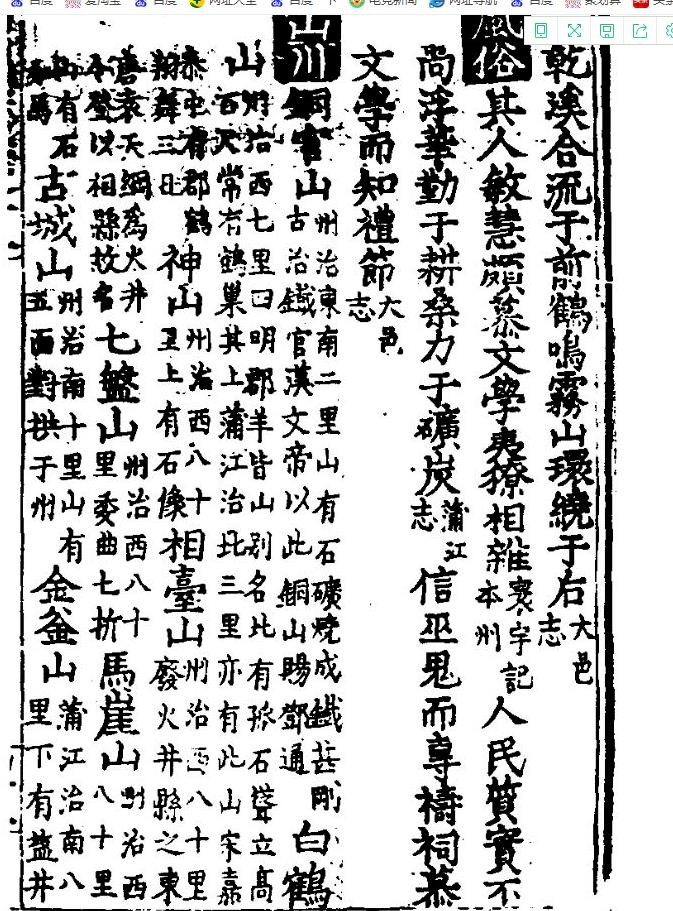 乾溪合流于前鶴鳴霧山環繞于右大邑志
風俗其人敏慧頗慕文學夷獠相雜寰宇記本州人民質實不
尚浮華勤于耕桑力于礦炭蒲江志信巫鬼而尊禱祠慕
文學而知禮節大邑志
山川銅官山州治東南二里山有石礦燒成鐵甚剛古治鐵官漢文帝以此銅山賜鄧通白鶴
山州治西七里曰明郡羊皆山别名此有孫石聳立高百尺常有鶴巢其上蒲江治北三里亦有此山宋嘉
泰中有郡鶴翔舞三日神山州治西八十里上有石像相臺山州治西八十里廢火井縣之東
唐袁天綱為火井令登以相縣故名七盤山州治西八十里委曲七折馬崖山州治西八十里
有石馬古城山州治南十里山有五面對拱于州金釜山蒲江治南八里下有鹽井